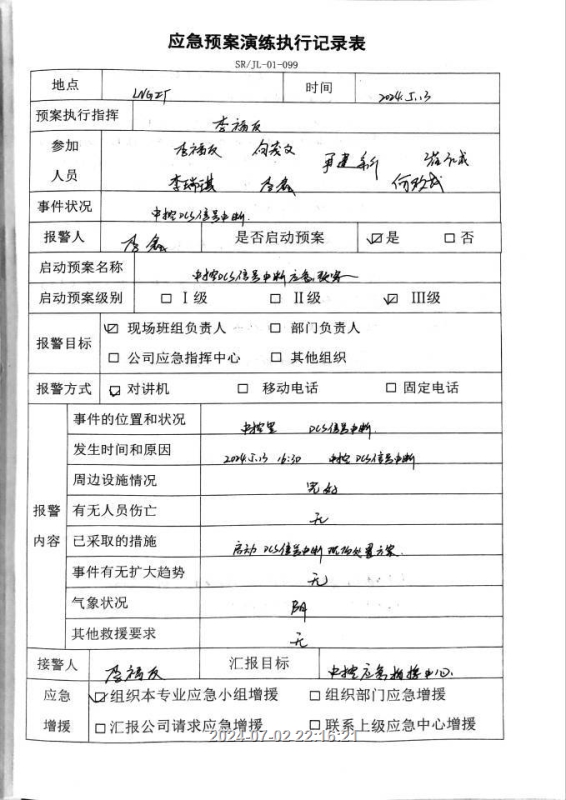 应急预案演练执行记录表
SR/JL-01-099
地点 LNG 时间 2024.5.13
预案执行指挥 李福友
参加 李福友
人员 李瑞琪 李磊
事件状况 中控DCS信号中断
报警人 李磊 是否启动预案 ☑是 □否
启动预案名称 中控DCS信号中断应急预案
启动预案级别 □ I级 □ II级 ☑ III级
报警目标 ☑ 现场班组负责人 □ 部门负责人
□ 公司应急指挥中心 □ 其他组织
报警方式 ☑ 对讲机 □ 移动电话 □ 固定电话
报警内容
事件的位置和状况 中控室 DCS信号中断.
发生时间和原因 2024.5.13 16:30 中控DCS信号中断
周边设施情况 完好
有无人员伤亡 无
已采取的措施 启动DCS信号中断现场处置方案.
事件有无扩大趋势 无
气象状况 阴
其他救援要求 无
接警人 李福友 汇报目标 中控应急指挥中心.
应急 ☑组织本专业应急小组增援 □组织部门应急增援
增援 □汇报公司请求应急增援 □联系上级应急中心增援
2024-07-02 22:16:21